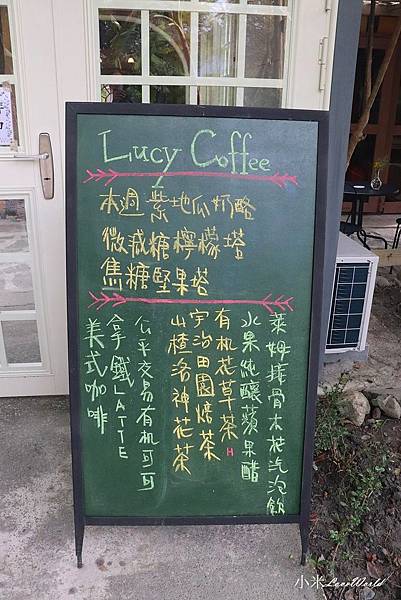 Lucy Coffee
本週 紫地瓜奶酪
微減糖檸檬塔
焦糖堅果塔
萊姆接骨木花汽泡飲
水果純釀蘋果醋
有机花草茶 H
宇治田園焙茶
山楂洛神花茶
公平交易有机可可
拿鐵LATTE
美式咖啡
小米LoveWorld